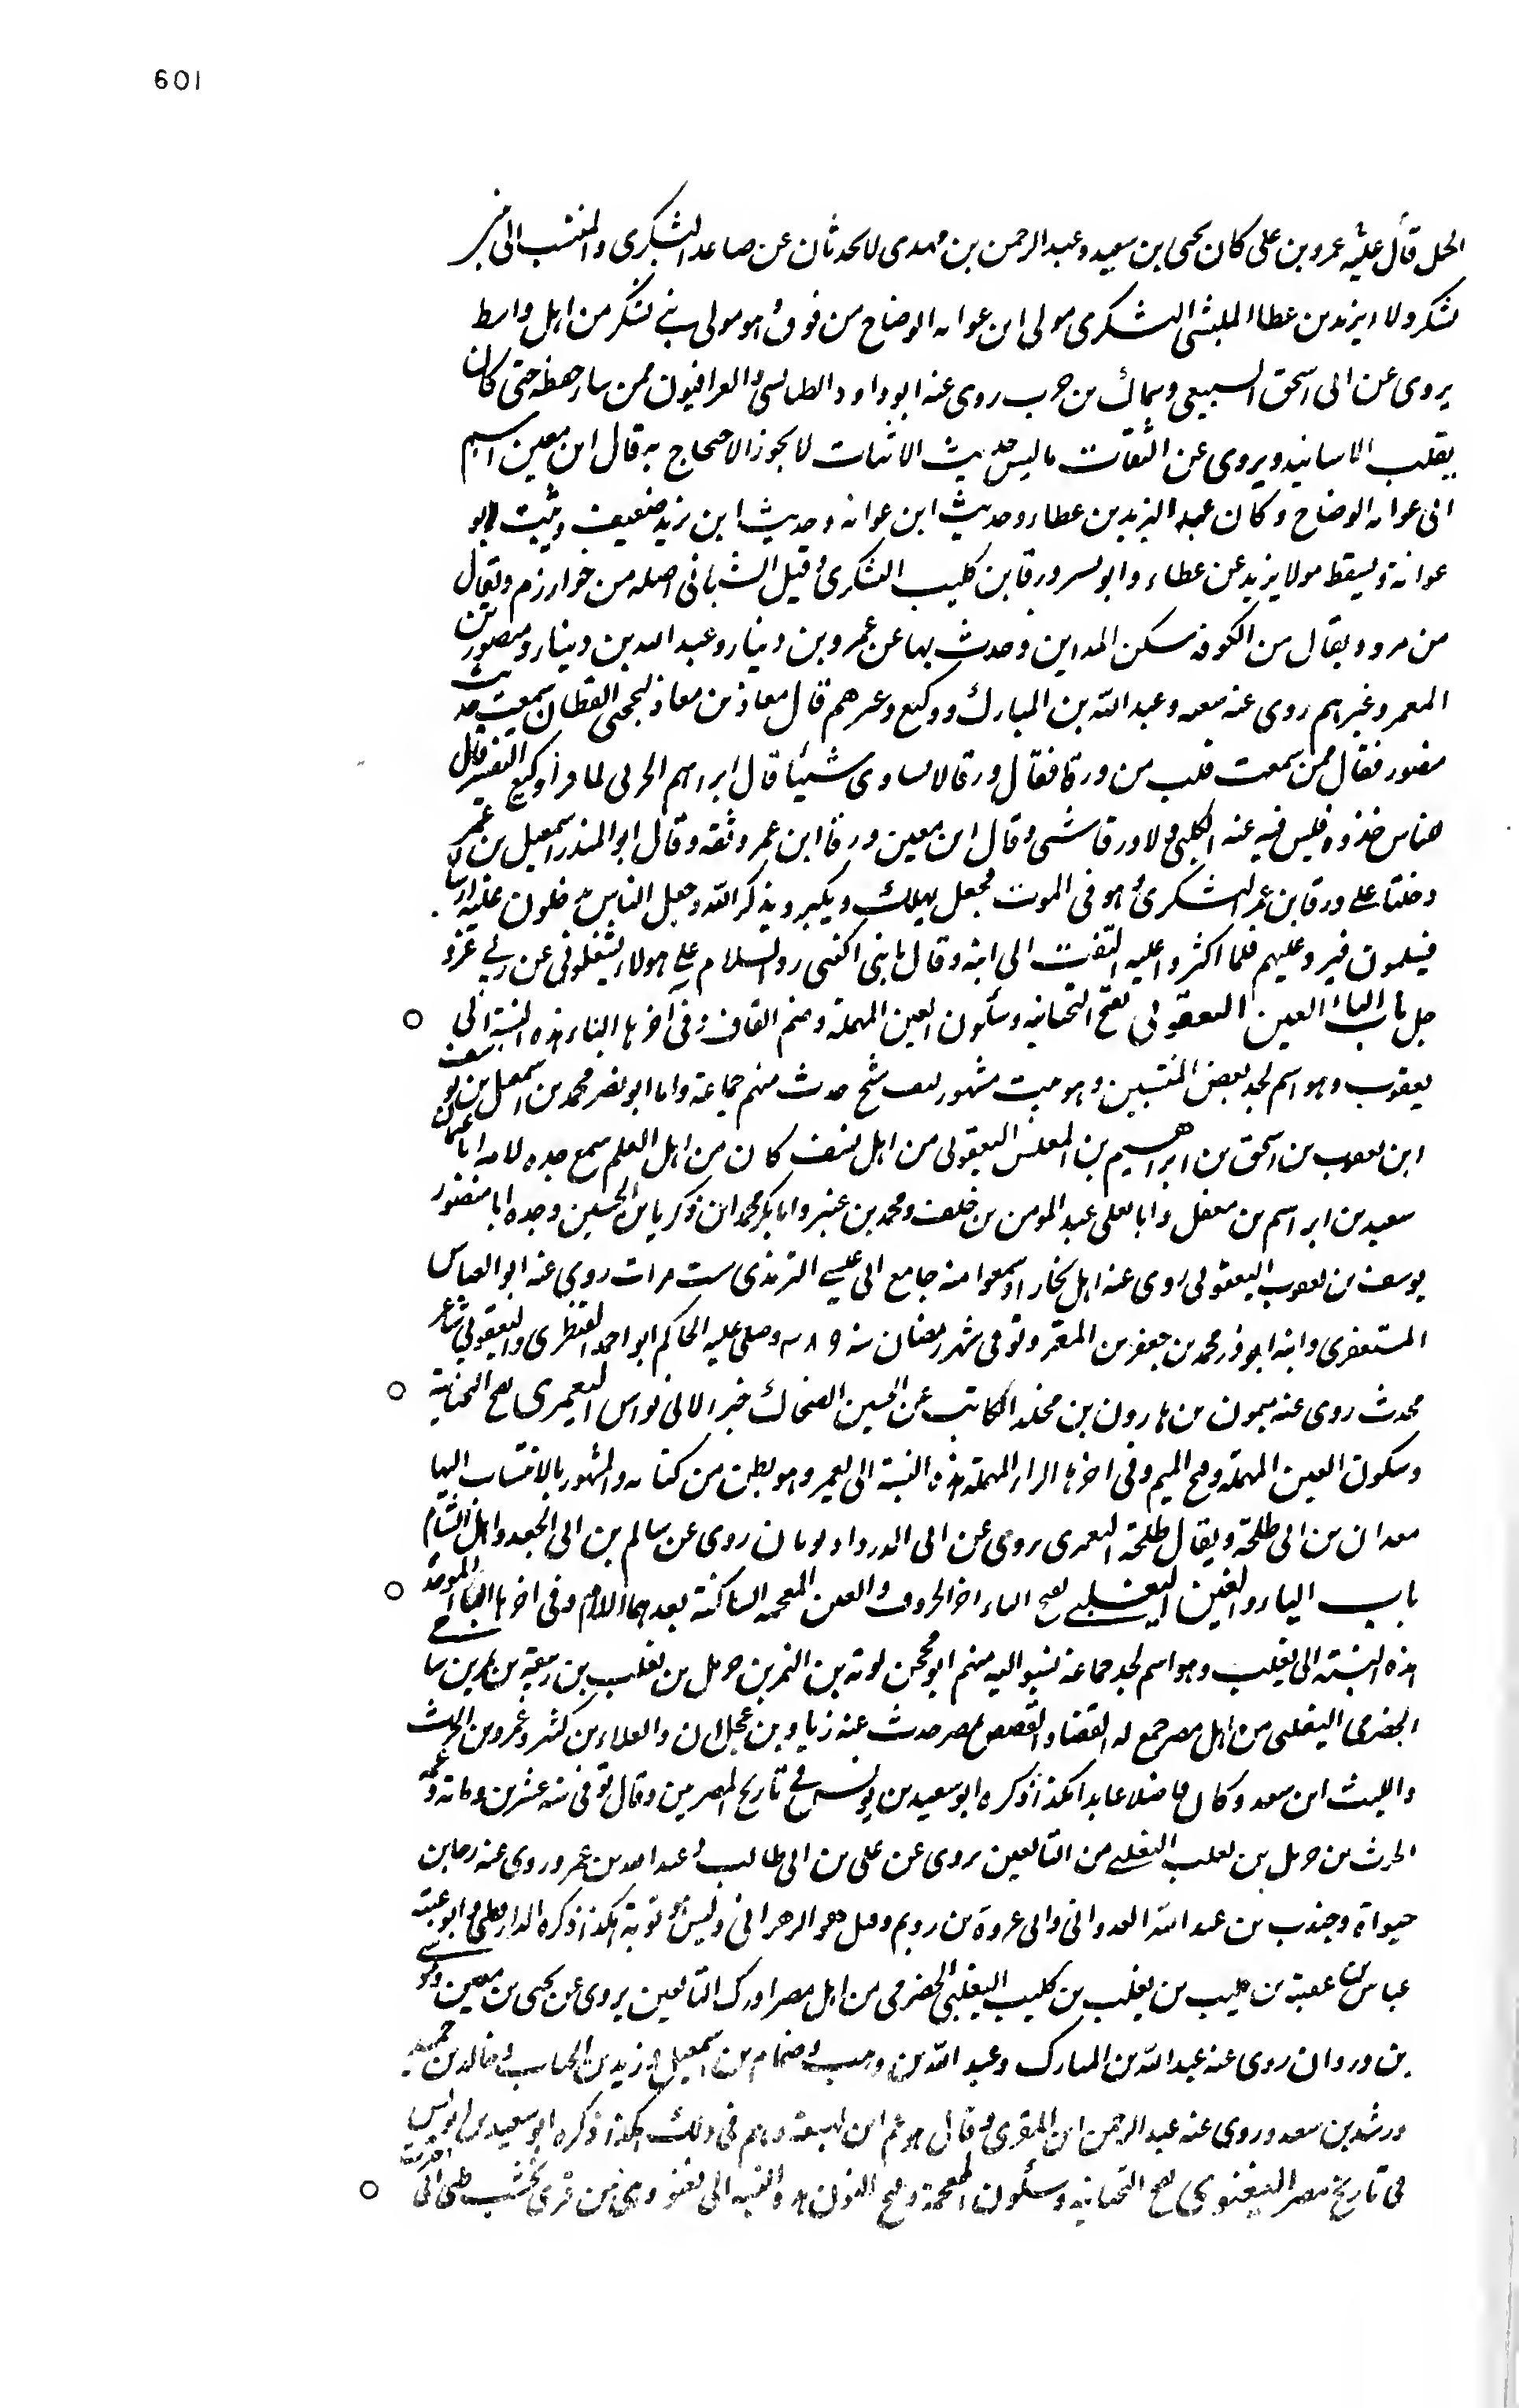 601
الجبل قال عليه عمرو بن على كان يحيى بن سعيد وعبد الرحمن بن مهدى لا يحدثان عن صاعد اليشكرى والمنتسب الى
يشكر ولاء يزيد بن عطا الليثى اليشكرى مولى ابن عوانه الوضاح من فوق وهو مولى بنى يشكر من اهل واسط
يروى عن ابى اسحق السبيعى وسماك بن حرب روى عنه ابو داود الطيالسى والعراقيون ممن ساء حفظه حتى كان
يقلب الاسانيد ويروى عن الثقات ما ليس حديث الاثبات لا يجوز الاحتجاج به قال ابن معين اسم
ابى عوانه الوضاح وكان عبدا ليزيد بن عطاء وحديث ابن عوانه وحديث ابن يزيد ضعيف وثبت ابو
عوانة وسقط مولاه يزيد عن عطاء وابو بسر ورقا بن كليب اليشكرى وقيل الشيبانى اصله من خوارزم ويقال
من مرو ويقال من الكوفه سكن المداين وحدث بها عن عمرو بن دينار وعبد الله بن دينار ومنصور بن
المعمر وغيرهم روى عنه شعبه وعبد الله بن المبارك ووكيع وغيرهم قال معاذ بن معاذ ليحيى القطان سمعت حديث
منصور فقال ممن سمعت قلت من ورقا فقال ورقا لا يساوى شيئا قال ابراهيم الحربى لما قرأ وكيع التفسير قال
للناس خذوه فليس فيه عنه الكلبى ولا ورقا شى وقال ابن معين ورقا ابن عمر وثقه وقال ابو المنذر اسمعيل بن عمر
دخلنا على ورقا بن عمر اليشكرى وهو فى الموت فجعل يهلل ويكبر ويذكر الله وجعل الناس يدخلون عليه ارسالا
فيسلمون فيرد عليهم فلما اكثروا عليه التفت الى ابنه وقال يا بنى اكفنى رد السلام على هولاء لا يشغلونى عن ربى عز و
جل باب الياء العين اليعقوبى بفتح التحتانيه وسكون العين المهملة وضم القاف وفى آخرها الباء هذه النسبة الى
يعقوب وهو اسم لجد بعض المنتسبين وهو بيت مشهور بنسف شيخ حدث منهم جماعة واما ابو نصر محمد بن اسمعيل بن يوسف
ابن يعقوب بن اسحق بن ابراهيم بن المغلس اليعقوبى من اهل نسف كان من اهل العلم سمع جده لامه ابا عثمان
سعيد بن ابراهيم بن معقل وابا يعلى عبد المومن بن خلف ومحمد بن عنبر وابا بكر محمد ابن زكريا بن الحسين وجده ابا منصور
يوسف بن يعقوب اليعقوبى روى عنه اهل بخارا وسمعوا منه جامع ابى عيسى الترمذى ست مرات روى عنه ابو العباس
المستغفرى وابنه ابو ذر محمد بن جعفر بن المعتمر وتوفى شهر رمضان سنه ٣٨٩ وصلى عليه الحاكم ابو احمد القنطرى واليعقوبى شاعر
محدث روى عنه ميمون بن هارون بن مخلد الكاتب عن الحسين الضحاك خبرا لابى نواس اليعمرى بفتح التحتانية
وسكون العين المهملة وفتح الميم وفى اخرها الراء المهملة هذه النسبة الى يعمر وهو بطن من كنانه والمشهور بالانتساب اليها
معدان بن ابى طلحة ويقال طلحة اليعمرى يروى عن ابى الدرداء وثوبان روى عن سالم بن ابى الجعد واهل الشام
باب الياء والغين اليغلبى بفتح الياء اخر الحروف والغين المعجمه الساكنة بعدهما اللام وفى اخرها الباء الموحدة
هذه النسبة الى يغلب وهو اسم لجد جماعة نسبوا اليه منهم ابو محجن توبه بن النمر بن حرمل بن يغلب بن ربيعة بن نمر بن
الحضرمى اليغلبى من اهل مصر جمع له القضا والقصص بمصر حدث عنه زياد بن عجلان والعلاء بن كثير وعمرو بن الحرث
والليث ابن سعد وكان فاضلا عابدا هكذا ذكره ابو سعيد بن يونس فى تاريخ المصريين وقال توفى سنه عشرين ومائه وعمه
الحرث بن حرمل بن يغلب اليغلبى من التابعين يروى عن على بن ابى طالب وعبد الله بن عمرو روى عنه رجا بن
حيواة وجندب بن عبد الله العدوانى وابى عروة بن رويم وقيل هو الزهرانى وليس هو توبة هكذا ذكره الدارقطنى وابو عقبة
عباس عقبة بن كليب بن يغلب بن كليب اليغلبى الحضرمى من اهل مصر ادرك التابعين يروى عن يحيى بن معين وموسى
بن وردان روى عنه عبد الله بن المبارك وعبد الله بن وهب وضمام بن اسمعيل وزيد بن الحباب وخالد بن حميد
ورشد بن سعد وروى عنه عبد الرحمن ابن المقرى وقال هو عم ابن لهيعة وهم فى ذلك هكذا ذكره ابو سعيد بن يونس
فى تاريخ مصر اليغنوى بفتح التحتانيه وسكون المعجمة وفتح النون والنسبه الى يغنو وهى من قرى نخشب